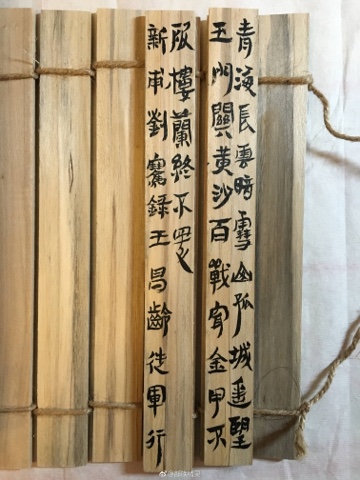 青海長雲暗雪山孤城遥望
玉門關黄沙百戰穿金甲不
破樓蘭終不還
新甫劉騫録王昌齡從軍行